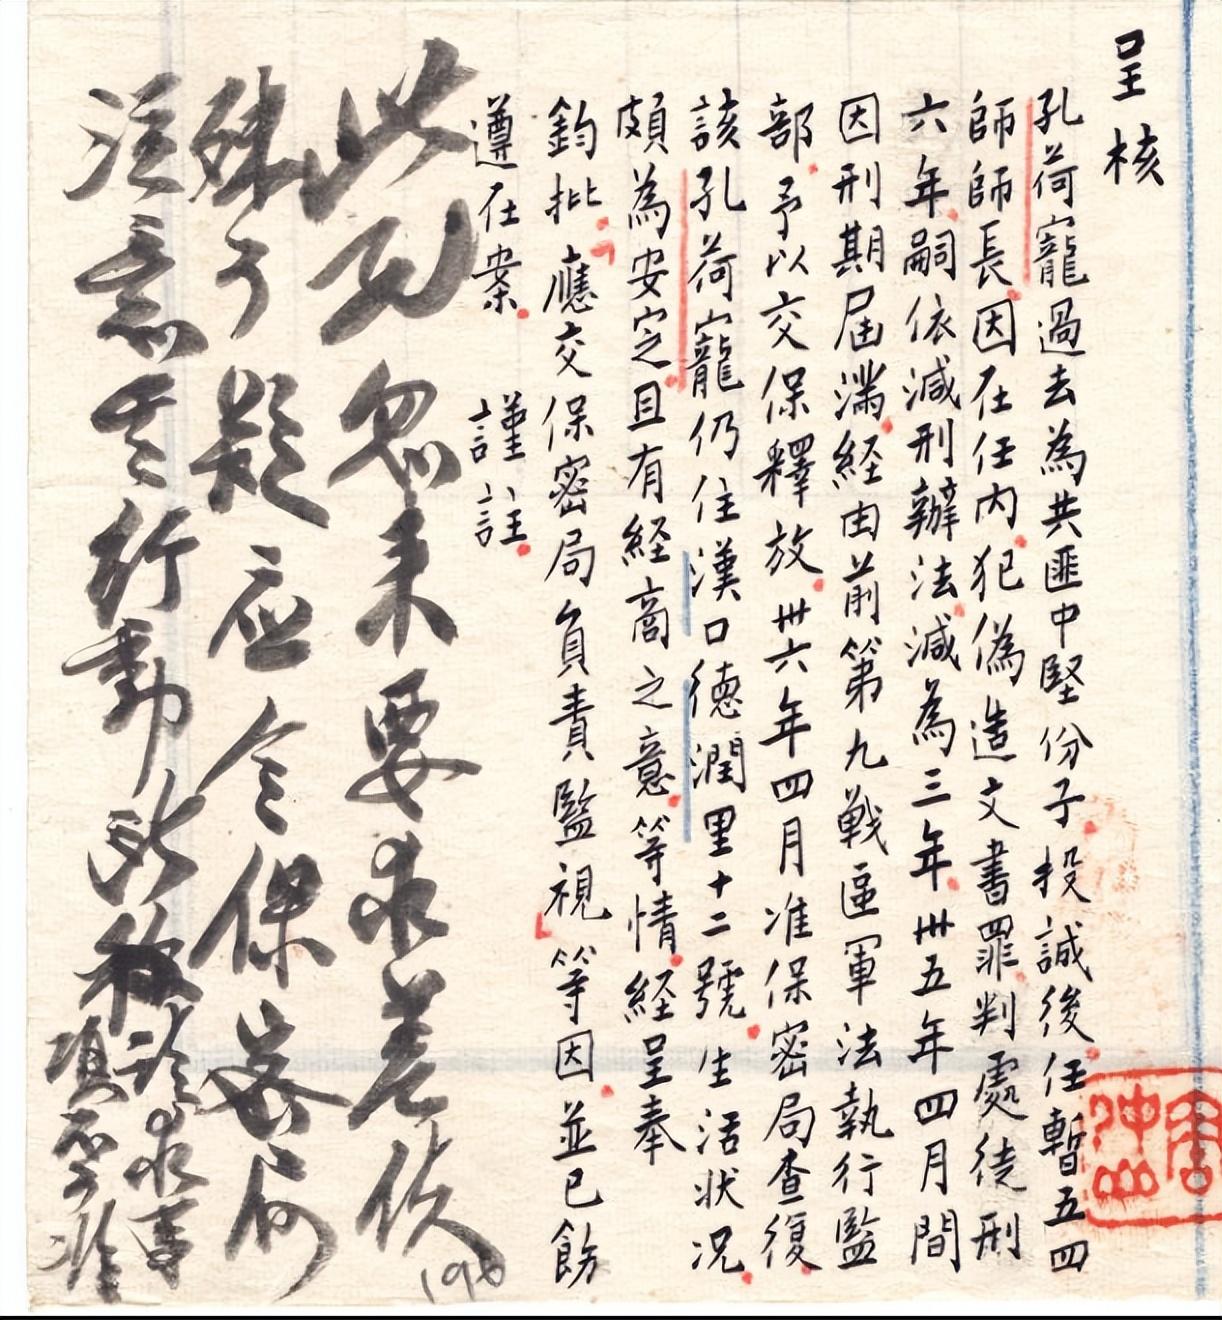 呈核
孔荷寵過去為共匪中堅份子投誠後任暫五四
師師長因在任內犯偽造文書罪判處徒刑
六年嗣依減刑辦法減為三年卅五年四月間
因刑期屆滿経由前第九戦區軍法執行監
部予以交保釋放卅六年四月准保密局查復
該孔荷寵仍住漢口德潤里十二號生活狀况
頗為安定且有経商之意等情経呈奉
鈞批「應交保密局負責監視」等因並已飭
遵在案　謹註
此忽來要求差伇
殊可疑应令保密局
注意其行動
求事
項不准
190